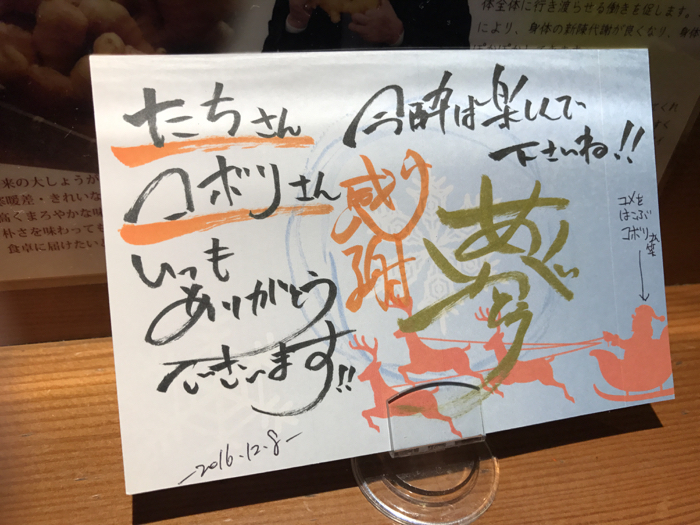 体全体に行き渡らせる働きを促します。
により、身体の新陳代謝が良くなり、身体
来の大しょうが
暖差・きれいな
高くまろやかな味
朴さを味わっても
食卓に届けたいま
たちさん
コボリさん
いつも
ありがとう
ございます!!
今酔は楽しんで
下さいね!!
感謝
夢
ユメを
はこぶ
コボリ
-2016.12.8-